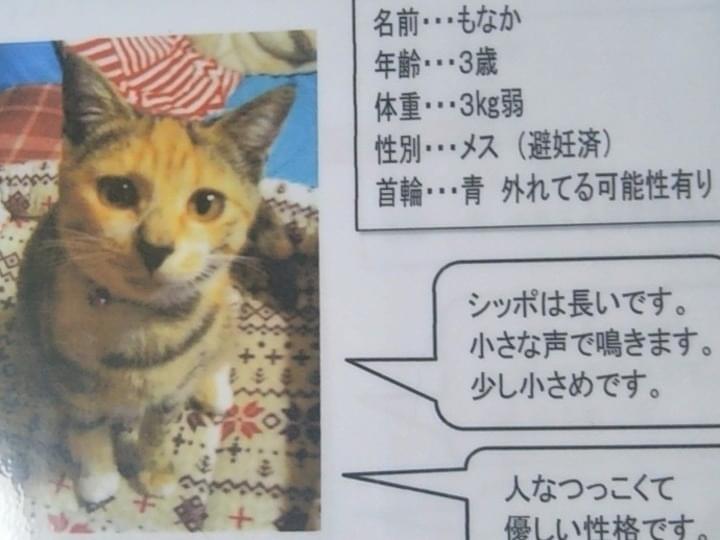 名前･･･もなか
年齢･･･3歳
体重･･･3kg弱
性別･･･メス（避妊済）
首輪･･･青 外れてる可能性有り
シッポは長いです。
小さな声で鳴きます。
少し小さめです。
人なつっこくて
優しい性格です。